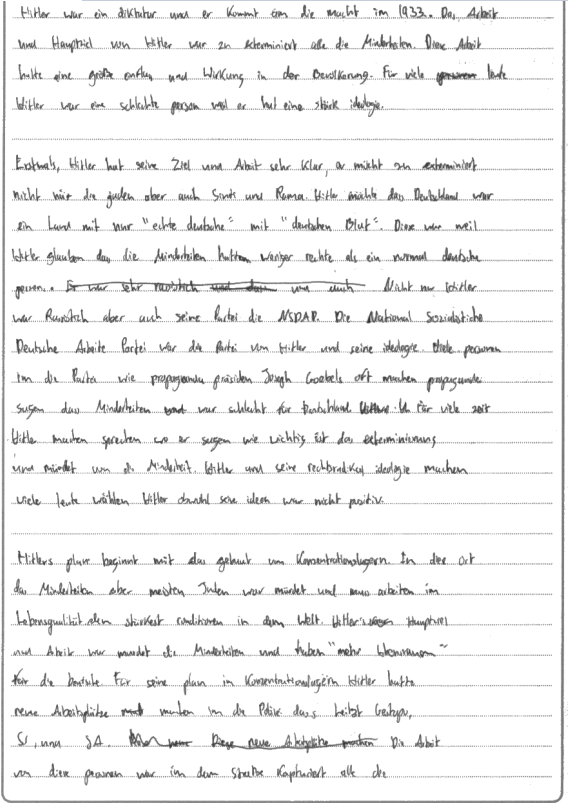 Hitler war ein diktatur und er kommt an die macht im 1933. Das Arbeit
und Hauptziel von Hitler war zu exterminiert alle die Minderheiten. Diese Arbeit
hatte eine große einflus und Wirkung in der Bevölkerung. Für viele leute
Hitler war eine schlechte person weil er hat eine stark ideologie.
Erstmals, Hitler hat seine Ziel und Arbeit sehr klar, er möcht zu exterminiert
nicht nür die juden aber auch Sinti und Roma. Hitler möchte das Deutschland war
ein Land mit nur "echte deutsche" mit "deutschen Blut". Diese war weil
Hitler glauben das die Minderheiten hatten weniger rechte als ein normal deutsche
person. Er war sehr rassistich und das und auch Nicht nur Hitler
war Rassistich aber auch seine Partei die NSDAP. Die National Sozialistiche
Deutsche Arbeite Partei war die Partei von Hitler und seine ideologie. Viele personen
im die Partei wie propaganda präsiden Joseph Goebels oft machen propaganda
sagen das Minderheiten war schlecht für Deutschland Für viele zeit
Hitler machen sprechen wo er sagen wie wichtig ist das exterminierung
und mürdet von die Minderheit. Hitler und seine rechtradikal ideologie machen
viele leute wählen Hitler obwohl seine ideen war nicht positiv.
Hitlers plan beginnt mit das gebaut von Konzentrationslagern. In der Ort
das Minderheiten aber meisten Juden war mürdet und muss arbeiten im
Lebensqualität den stärkest conditionen in dem Welt. Hitler's Hauptziel
und Arbeit war murdet die Minderheiten und haben "mehr lebensraum"
für die deutsche. Für seine plan im Konzentrationslagern Hitler hatte
neue Arbeitsplätze im die Polizei das heitzt Gestapo,
SS, und SA. Diese neue Arbeitsplätze machen Die Arbeit
von diese personen war im dem Straße kapturiert all die